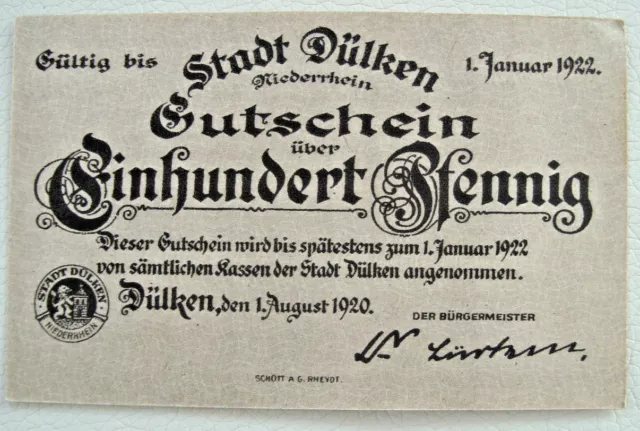 Gültig bis Stadt Dülken 1. Januar 1922.
Niederrhein
Gutschein
über
Einhundert Pfennig
Dieser Gutschein wird bis spätestens zum 1. Januar 1922
von sämtlichen Kassen der Stadt Dülken angenommen.
Dülken, den 1. August 1920.
DER BÜRGERMEISTER
STADT DÜLKEN
NIEDERRHEIN
SCHÖTT A G. RHEYDT.